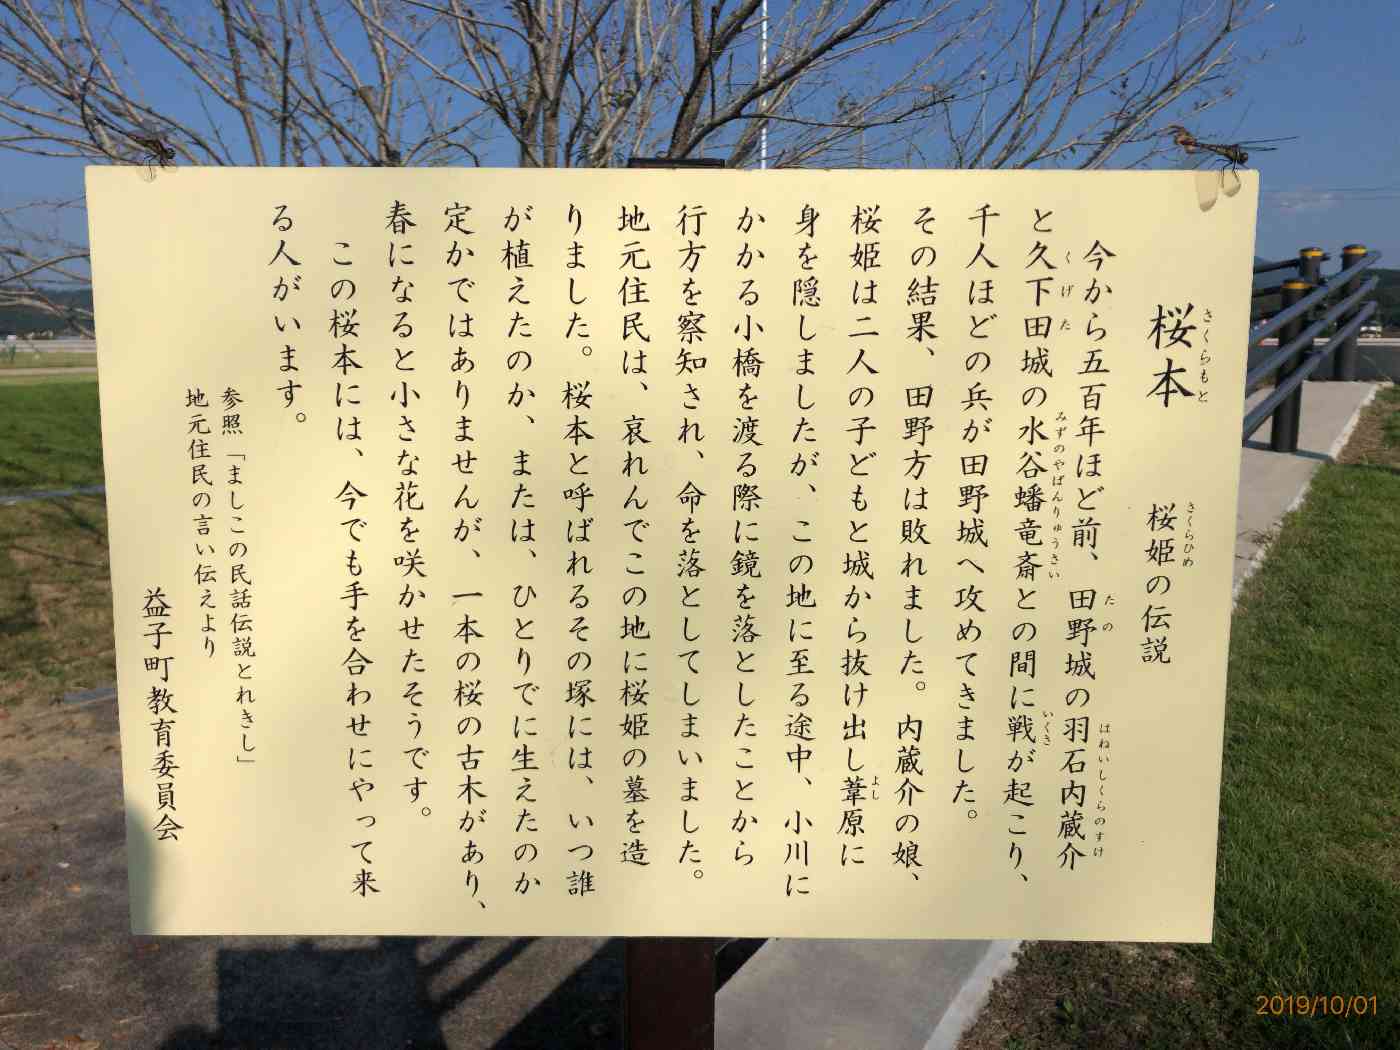 桜本 桜姫の伝説
さくらもと さくらひめ
今から五百年ほど前、田野城の羽石内蔵介
たの はねいしくらのすけ
と久下田城の水谷蟠竜斎との間に戦が起こり、
くげた みずのやばんりゅうさい いくさ
千人ほどの兵が田野城へ攻めてきました。
その結果、田野方は敗れました。内蔵介の娘、
桜姫は二人の子どもと城から抜け出し葦原に
よし
身を隠しましたが、この地に至る途中、小川に
かかる小橋を渡る際に鏡を落としたことから
行方を察知され、命を落としてしまいました。
地元住民は、哀れんでこの地に桜姫の墓を造
りました。桜本と呼ばれるその塚には、いつ誰
が植えたのか、または、ひとりでに生えたのか
定かではありませんが、一本の桜の古木があり、
春になると小さな花を咲かせたそうです。
この桜本には、今でも手を合わせにやって来
る人がいます。
参照「ましこの民話伝説とれきし」
地元住民の言い伝えより
益子町教育委員会
2019/10/01